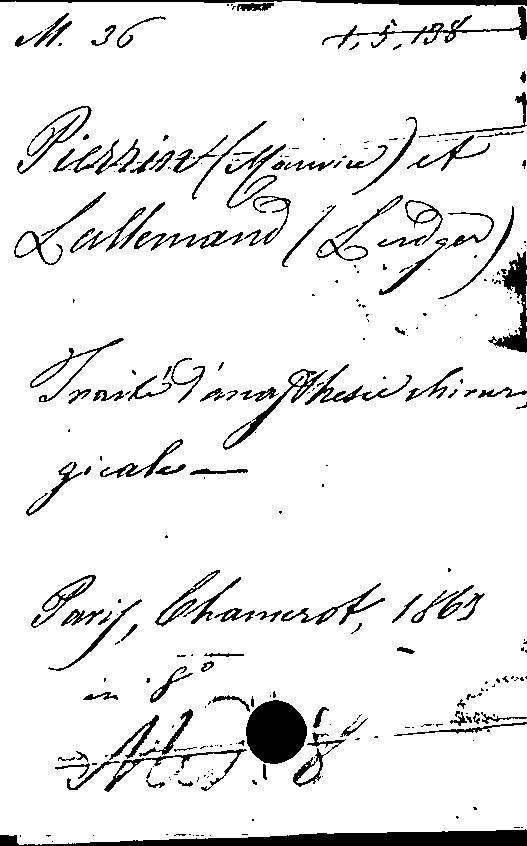 M. 36 1, 5, 138
Pierrin (Maurice) et
Lallemand (Ludger)
Traité d'anasthesie chirur,
gicale —
Paris, Chamerot, 1863
in 8°